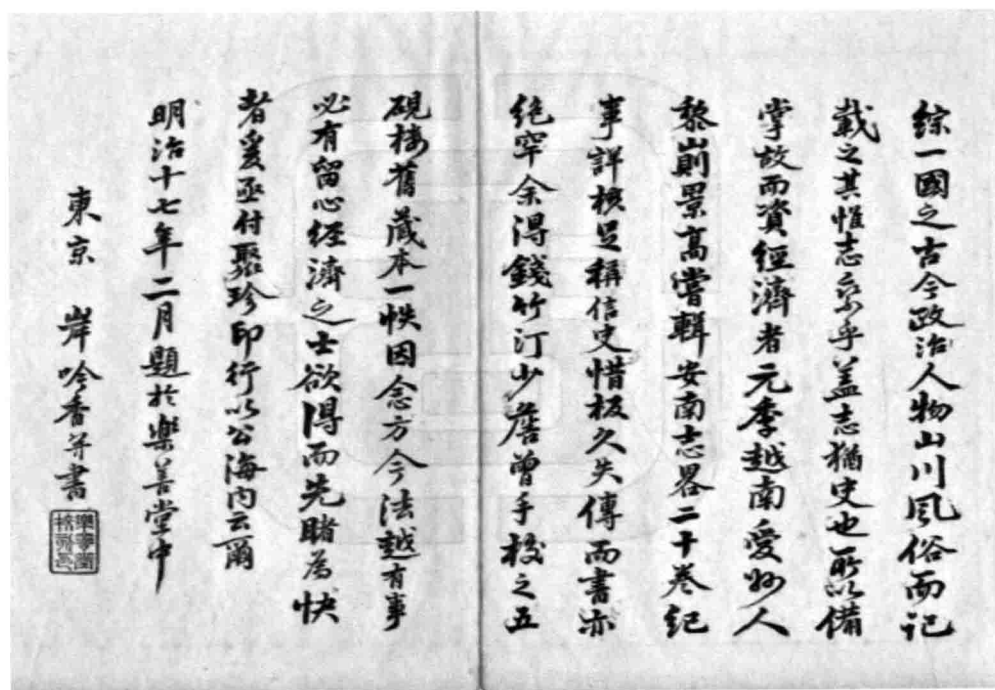 綜一國之古今政治人物山川風俗而記
載之其惟志乘乎蓋志猶史也所以備
掌故而資經濟者元季越南愛州人
黎崱景高嘗輯安南志畧二十卷紀
事詳核足稱信史惜板久失傳而書亦
絕罕余得錢竹汀少詹曾手校之五
硯樓舊藏本一帙因念方今法越有事
必有留心經濟之士欲得而先睹為快
者爰亟付聚珍印行以公海內云爾
明治十七年二月題於樂善堂中
東京 岸吟香并書